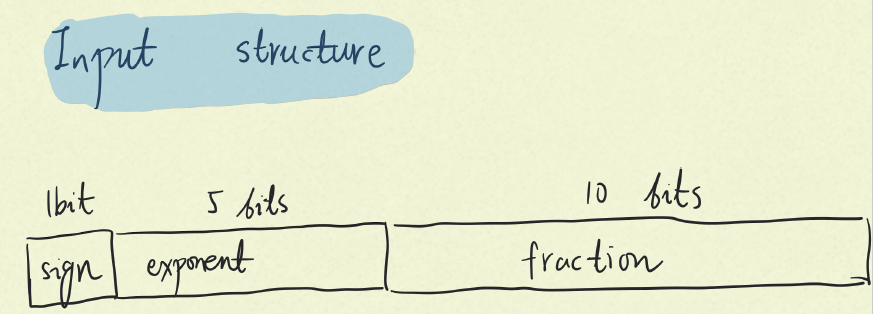 Input structure
1bit 5 bits 10 bits
sign exponent fraction